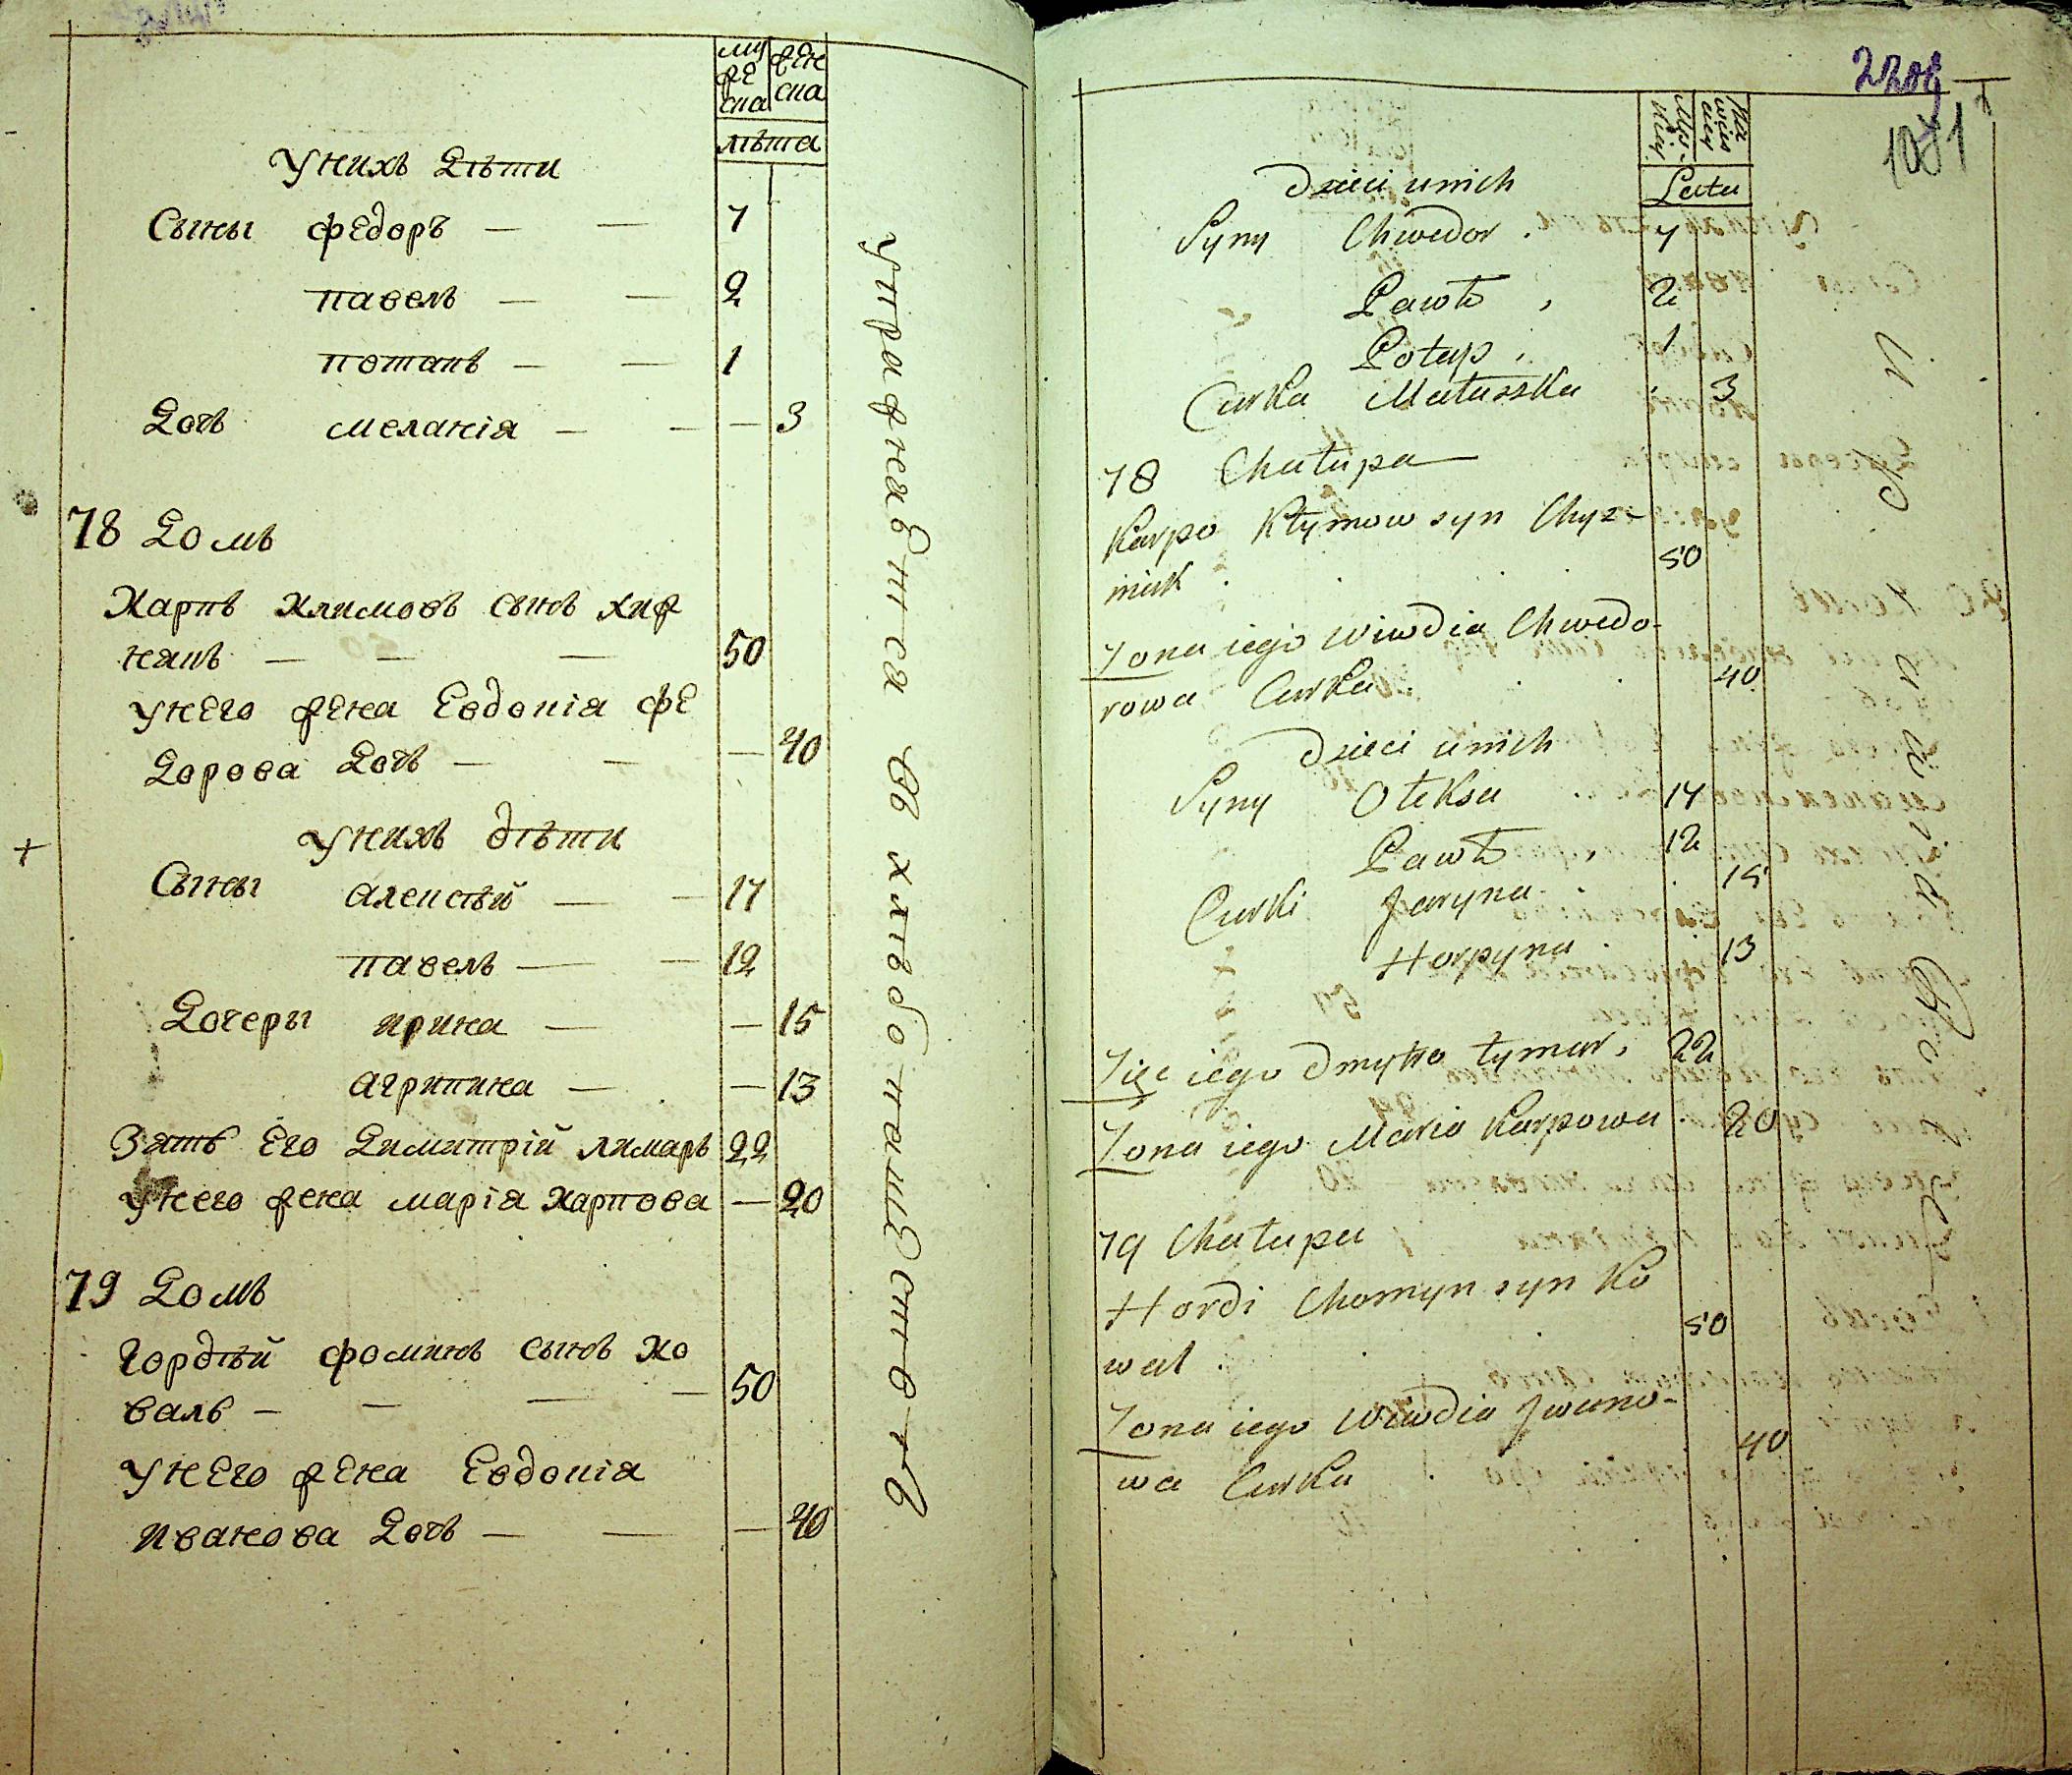 му
же
ска
жен
ска
лѣта
У нихъ дѣти
Сыны федоръ — — 7
павелъ — — 2
потапъ — — 1
Дочь меланія — — — 3
78 Домъ
Карпъ Климовъ сынъ хиж
накъ — — — 50
У него жена Евдокія фе
дорова Дочь — — — 40
У нихъ дѣти
Сыны алексѣй — — 17
павелъ — — 12
Дочеры ирина — — 15
агрипина — — 13
Зять Его Димитрій лимаръ 22
У него жена марія Карпова — 20
79 Домъ
Гордѣй фоминъ сынъ Ко
валь — — — — 50
У него жена Евдокія
иванова Дочь — — — 40
упражнавится въ хлѣбопашествѣ
2208
1081
Męs-
kiey
Latu
Dzieci unich
Syny Chwedor . 7
Pawło , 2
Potap . 1
Curka Małaszka . 3
78 Chałupa
Karpo Kłymow syn Chyz-
niak . 50
Zona iego Wiwdia Chwedo-
rowa Curka . . . 40
Dzieci unich
Syny Ołeksa . 17
Pawło , 12
Curki Jaryna . . 15
Horpyna . . 13
Zięc iego Dmytro Łymar , 22
Zona iego Maria Karpowa 20
79 Chałupa
Hordi Chomyn syn Ko
wal . . 50
Zona iego Wiwdia Iwano-
wa Curka . 40